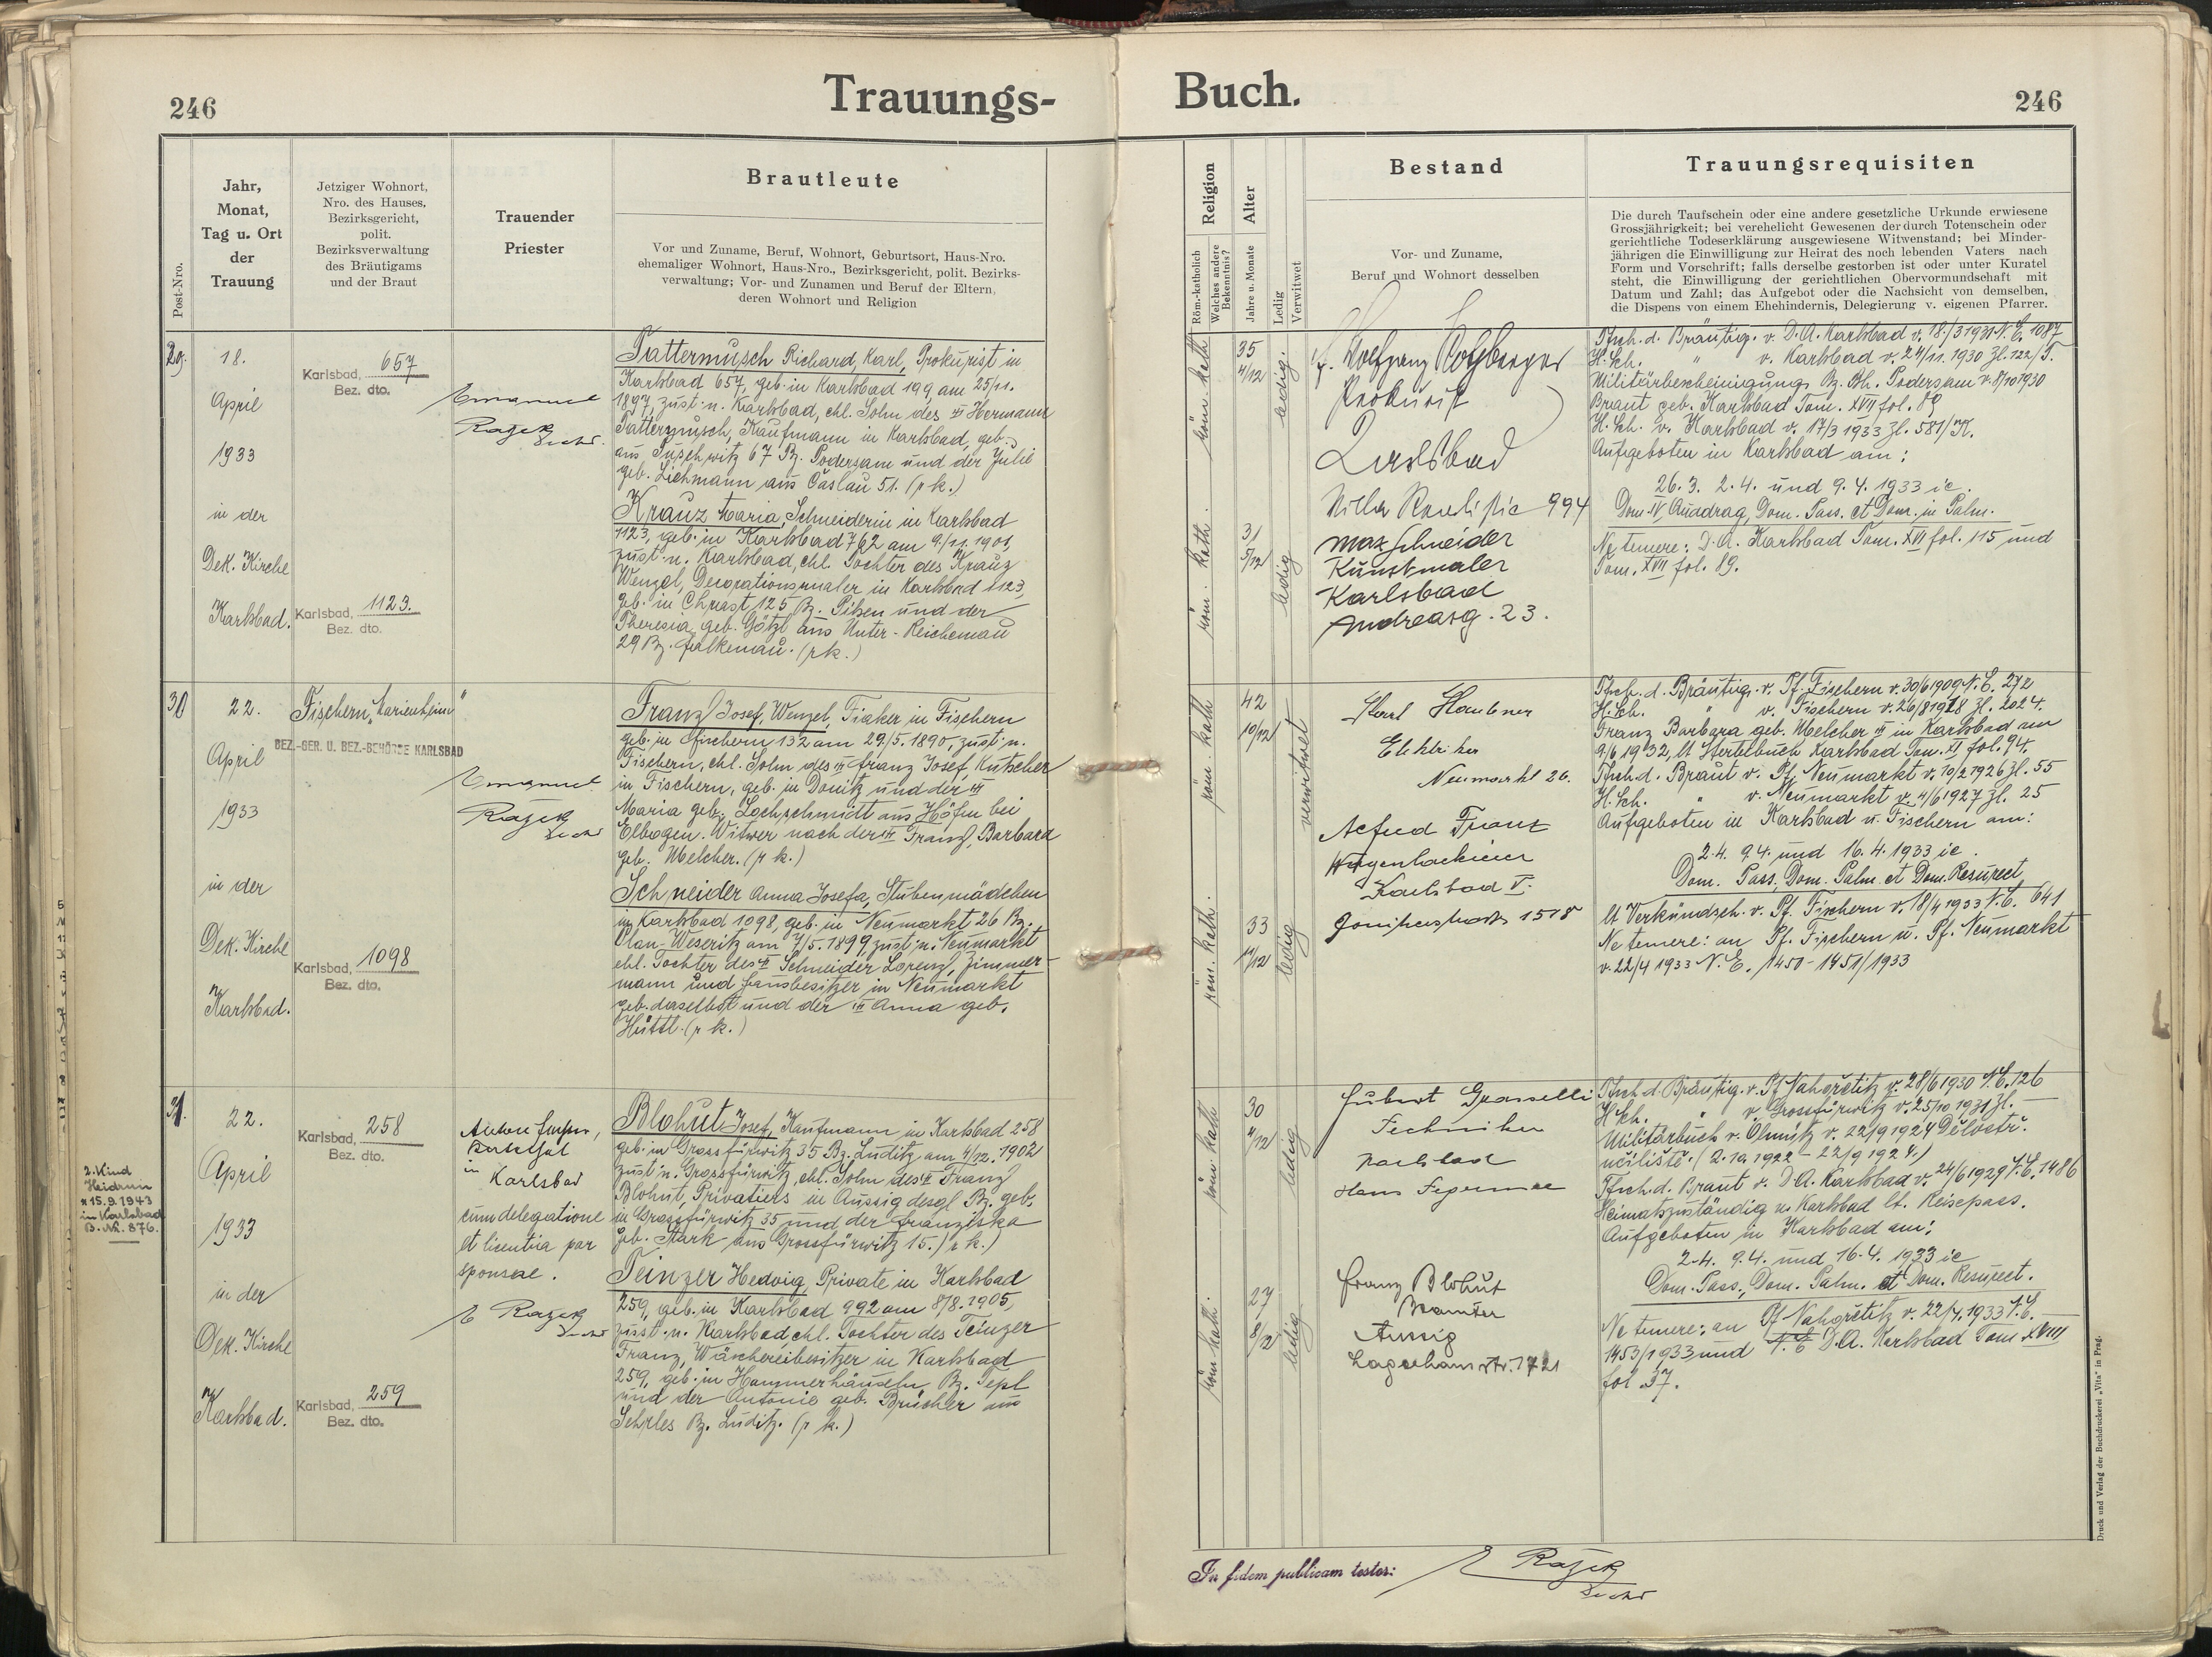 246
Trauungs-
Buch.
246
Post-Nro.
Jahr,
Monat,
Tag u. Ort
der
Trauung
Jetziger Wohnort,
Nro. des Hauses,
Bezirksgericht,
polit.
Bezirksverwaltung
des Bräutigams
und der Braut
Trauender
Priester
Brautleute
Vor und Zuname, Beruf, Wohnort, Geburtsort, Haus-Nro.
ehemaliger Wohnort, Haus-Nro., Bezirksgericht, polit. Bezirks-
verwaltung; Vor- und Zunamen und Beruf der Eltern,
deren Wohnort und Religion
Religion
Röm.-katholisch
Welches andere
Bekenntnis?
Alter
Jahre u. Monate
Ledig
Verwitwet
Bestand
Vor- und Zuname,
Beruf und Wohnort desselben
Trauungsrequisiten
Die durch Taufschein oder eine andere gesetzliche Urkunde erwiesene
Grossjährigkeit; bei verehelicht Gewesenen der durch Totenschein oder
gerichtliche Todeserklärung ausgewiesene Witwenstand; bei Minder-
jährigen die Einwilligung zur Heirat des noch lebenden Vaters nach
Form und Vorschrift; falls derselbe gestorben ist oder unter Kuratel
steht, die Einwilligung der gerichtlichen Obervormundschaft mit
Datum und Zahl; das Aufgebot oder die Nachsicht von demselben,
die Dispens von einem Ehehindernis, Delegierung v. eigenen Pfarrer.
29.
18.
April
1933
in der
Dek. Kirche
Karlsbad.
Karlsbad, 657
Bez. dto.
Karlsbad, 1123.
Bez. dto.
Emanuel
Rajek
Tattermusch Richard, Karl, Prokurist in
Karlsbad 657, geb. in Karlsbad 199, am 25/11.
1897, zust. n. Karlsbad, ehl. Sohn des Hermann
Tattermusch, Kaufmann in Karlsbad, geb.
aus Puschwitz 67 Bz. Podersam und der Julie
geb. Lichmann aus Časlau 51. (r k.)
Kranz Maria, Schneiderin in Karlsbad
1123, geb. in Karlsbad 762 am 9./11. 1901,
zust. n. Karlsbad, ehl. Tochter des Kranz
Wenzel, Decorationsmaler in Karlsbad 1123,
geb. in Chrast 125 Bz. Pilsen und der
Theresia geb. Götzl aus Unter-Reichenau
29 Bz. Falkenau. (r k.)
röm. kath.
35
4/12
ledig.
Wolfgang
Prokurist
994
röm. kath.
31
5/12
ledig
Max Schneider
Kunstmaler
Karlsbad
Andreasg. 23.
Tfsch. d. Bräutig. v. D. A. Karlsbad v. 18./3 1931 N. E. 1087
H. Sch. " v. Karlsbad v. 24/11. 1930 Zl. 122/T.
Militärbescheinigung Bz. Bh. Podersam v. 8/10 1930
Braut geb. Karlsbad Tom. XVII fol. 89
H. Sch. v. Karlsbad v. 17/3 1933 Zl. 581/K.
Aufgeboten in Karlsbad am:
26.3. 2.4. und 9.4. 1933 ie.
Dom. IV Quadrag, Dom. Pass. et Dom. in Palm.
Ne temere: D. A. Karlsbad Tom. XVI fol. 115 und
Tom. XVII fol. 89.
30
22.
April
1933
in der
Dek. Kirche
Karlsbad.
Fischern „Marienheim"
BEZ.-GER. U. BEZ.-BEHÖRDE KARLSBAD
Karlsbad, 1098
Bez. dto.
Emanuel
Rajek
Franzl Josef, Wenzel, Fiaker in Fischern
geb. in Fischern 132 am 29./5. 1890, zust. n.
Fischern, ehl. Sohn des Franz Josef, Kutscher
in Fischern, geb. in Donitz und der
Maria geb. Lochschmidt aus Höfen bei
Elbogen. Witwer nach der Franzl, Barbara
geb. Melcher. (r k.)
Schneider Anna Josefa, Stubenmädchen
in Karlsbad 1098, geb. in Neumarkt 26 Bz.
Plan-Weseritz am 7/5. 1899, zust. n. Neumarkt
ehl. Tochter des Schneider Lorenz, Zimmer-
mann und Hausbesitzer in Neumarkt
geb. daselbst und der Anna geb.
Hüttl. (r k.)
röm. kath
42
10/12
verwitwet
Karl Haubner
Elektriker
Neumarkt 26.
röm. kath.
33
11/12
ledig
Alfred Franz
Karlsbad V.
1518
Tfsch. d. Bräutig. v. Pf. Fischern v. 30/6 1909 N. E. 272
H. Sch. " v. Fischern v. 26/8 1918 Zl. 2024.
Franz Barbara geb. Melcher in Karlsbad am
9/6 1932, lt Sterbebuch Karlsbad Tom. XI fol. 94.
Tfsch. d. Braut v. Pf. Neumarkt v. 10/2 1926 Zl. 55
H. Sch. " v. Neumarkt v. 4/6 1927 Zl. 25
Aufgeboten in Karlsbad u. Fischern am:
2.4. 9.4. und 16.4. 1933 ie.
Dom. Pass., Dom. Palm. et Dom. Resurect.
lt Verkündsch. v. Pf. Fischern v. 18/4 1933 N. E. 641
Ne temere: an Pf. Fischern u. Pf. Neumarkt
v. 22/4 1933 N. E. 1450 - 1451/1933
31.
22.
April
1933
in der
Dek. Kirche
Karlsbad.
2. Kind
Heidrun
* 15. 9. 1943
in Karlsbad
B. Nr. 876.
Karlsbad, 258
Bez. dto.
Karlsbad, 259
Bez. dto.
in
Karlsbad
cum delegatione
et licentia par
sponsae.
E Rajek
Blohut Josef, Kaufmann in Karlsbad 258
geb. in Grossfürwitz 35 Bz. Luditz am 4/12. 1902
zust. n. Grossfürwitz, ehl. Sohn des Franz
Blohut, Privatiers in Aussig desgl. Bz. geb.
in Grossfürwitz 35 und der Franziska
geb. Stark aus Grossfürwitz 15. (r k.)
Teinzer Hedwig, Private in Karlsbad
259, geb. in Karlsbad 992 am 8/8. 1905,
zust. n. Karlsbad, ehl. Tochter des Teinzer
Franz, Wäschereibesitzer in Karlsbad
259, geb. in Hammerhäuseln Bz. Tepl
und der Antonie geb. Brüchler aus
Sehrles Bz. Luditz. (r k.)
röm. kath.
30
4/12
ledig
Hubert Grasselli
Techniker
Karlsbad
Hans
röm. kath.
27
8/12
ledig
Franz Blohut
Beamter
Aussig
Lagerhausstr. 1721
Tfsch. d. Bräutig. v. Pf Nahořetitz v. 28/6 1930 N. E. 126
H Sch. " v. Grossfürwitz v. 25/10 1931 Zl. —
Militärbuch v. Olmütz v. 22/9 1924 Dělostř.
učiliště. (2.10. 1922 - 22/9 1924.)
Tfsch. d. Braut v. D. A. Karlsbad v. 24/6 1929 N. E. 1486
Heimatszuständig n. Karlsbad lt. Reisepass.
Aufgeboten in Karlsbad am:
2.4. 9.4. und 16.4. 1933 ie
Dom. Pass., Dom. Palm. et Dom. Resurect.
Ne temere: an Pf Nahořetitz v. 22/4. 1933 N. E.
1453/1933 und N. E D. A. Karlsbad Tom XVIII
fol 37.
In fidem publicam testor:
E Rajek
Druck und Verlag der Buchdruckerei „Vita" in Prag.